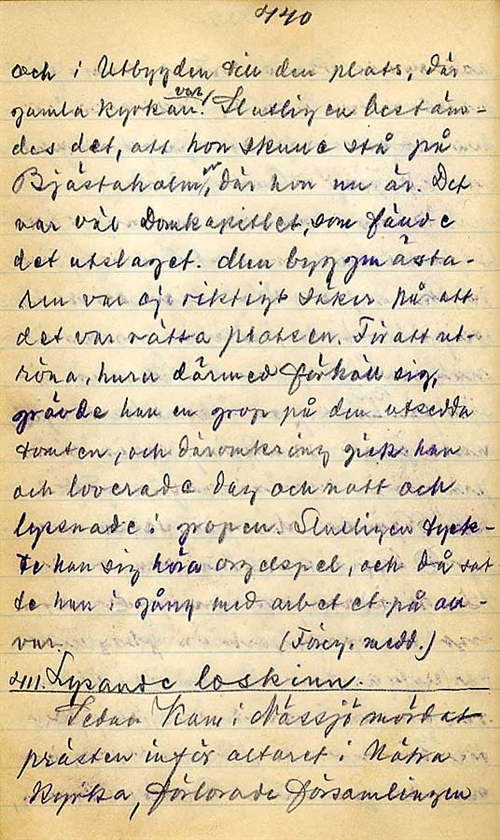 440
och i Utbygden till den plats, där
gamla kyrkan var. Slutligen bestäm-
des det, att hon skulle stå på
Bjästaholmen, där hon nu är. Det
var väl Domkapitlet, som fällde
det utslaget. Men byggmästa-
ren var ej riktigt säker på att
det var rätta platsen. För att ut-
röna, huru därmed förhöll sig,
grävde han en grop på den utsedda
tomten, och däromkring gick han
och loverade dag och natt och
lyssnade i gropen. Slutligen tyck-
te han sig höra orgelspel, och då sat-
te han i gång med arbetet på all-
var. (Föreg. medd.)
411. Lysande loskinn.
Sedan Kam i Nässjö mördat
prästen inför altaret i Nätra
kyrka, förlorade församlingen